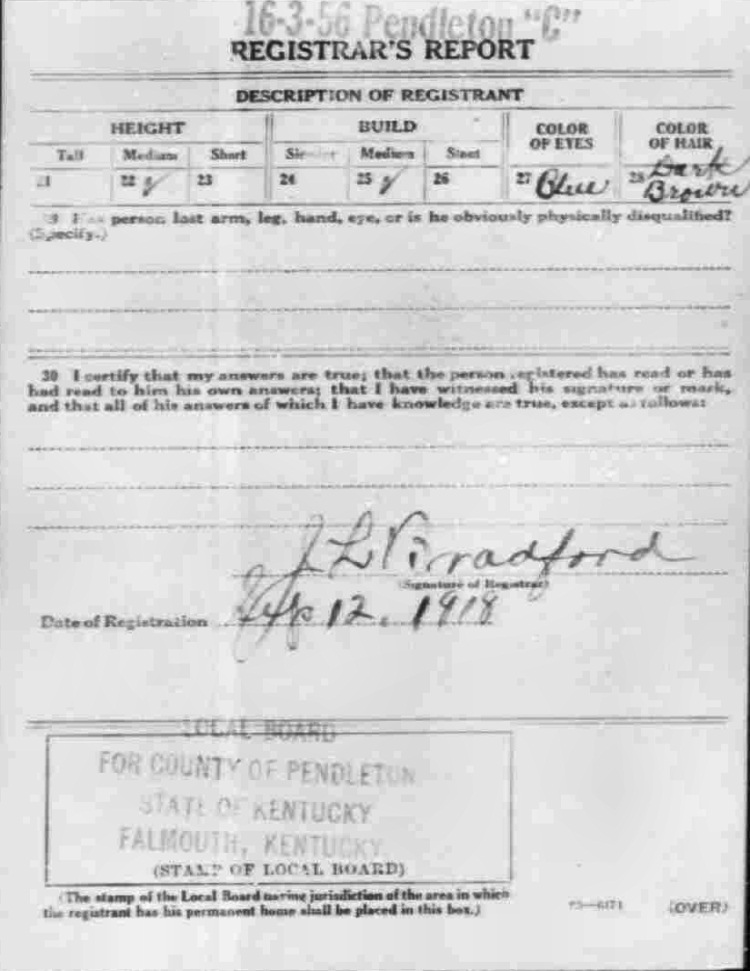 16-3-56 Pendleton "C"
REGISTRAR'S REPORT
DESCRIPTION OF REGISTRANT
HEIGHT BUILD COLOR OF EYES COLOR OF HAIR
Tall Medium Short Slender Medium Stout
21 22 23 24 25 26 27 Blue 28 Dark Brown
29 Has person lost arm, leg, hand, eye, or is he obviously physically disqualified?
(Specify.)
30 I certify that my answers are true; that the person registered has read or has
had read to him his own answers; that I have witnessed his signature or mark,
and that all of his answers of which I have knowledge are true, except as follows:
J L Bradford
(Signature of Registrar)
Date of Registration Sep 12, 1918
LOCAL BOARD
FOR COUNTY OF PENDLETON
STATE OF KENTUCKY
FALMOUTH, KENTUCKY.
(STAMP OF LOCAL BOARD)
(The stamp of the Local Board having jurisdiction of the area in which
the registrant has his permanent home shall be placed in this box.)
(OVER)